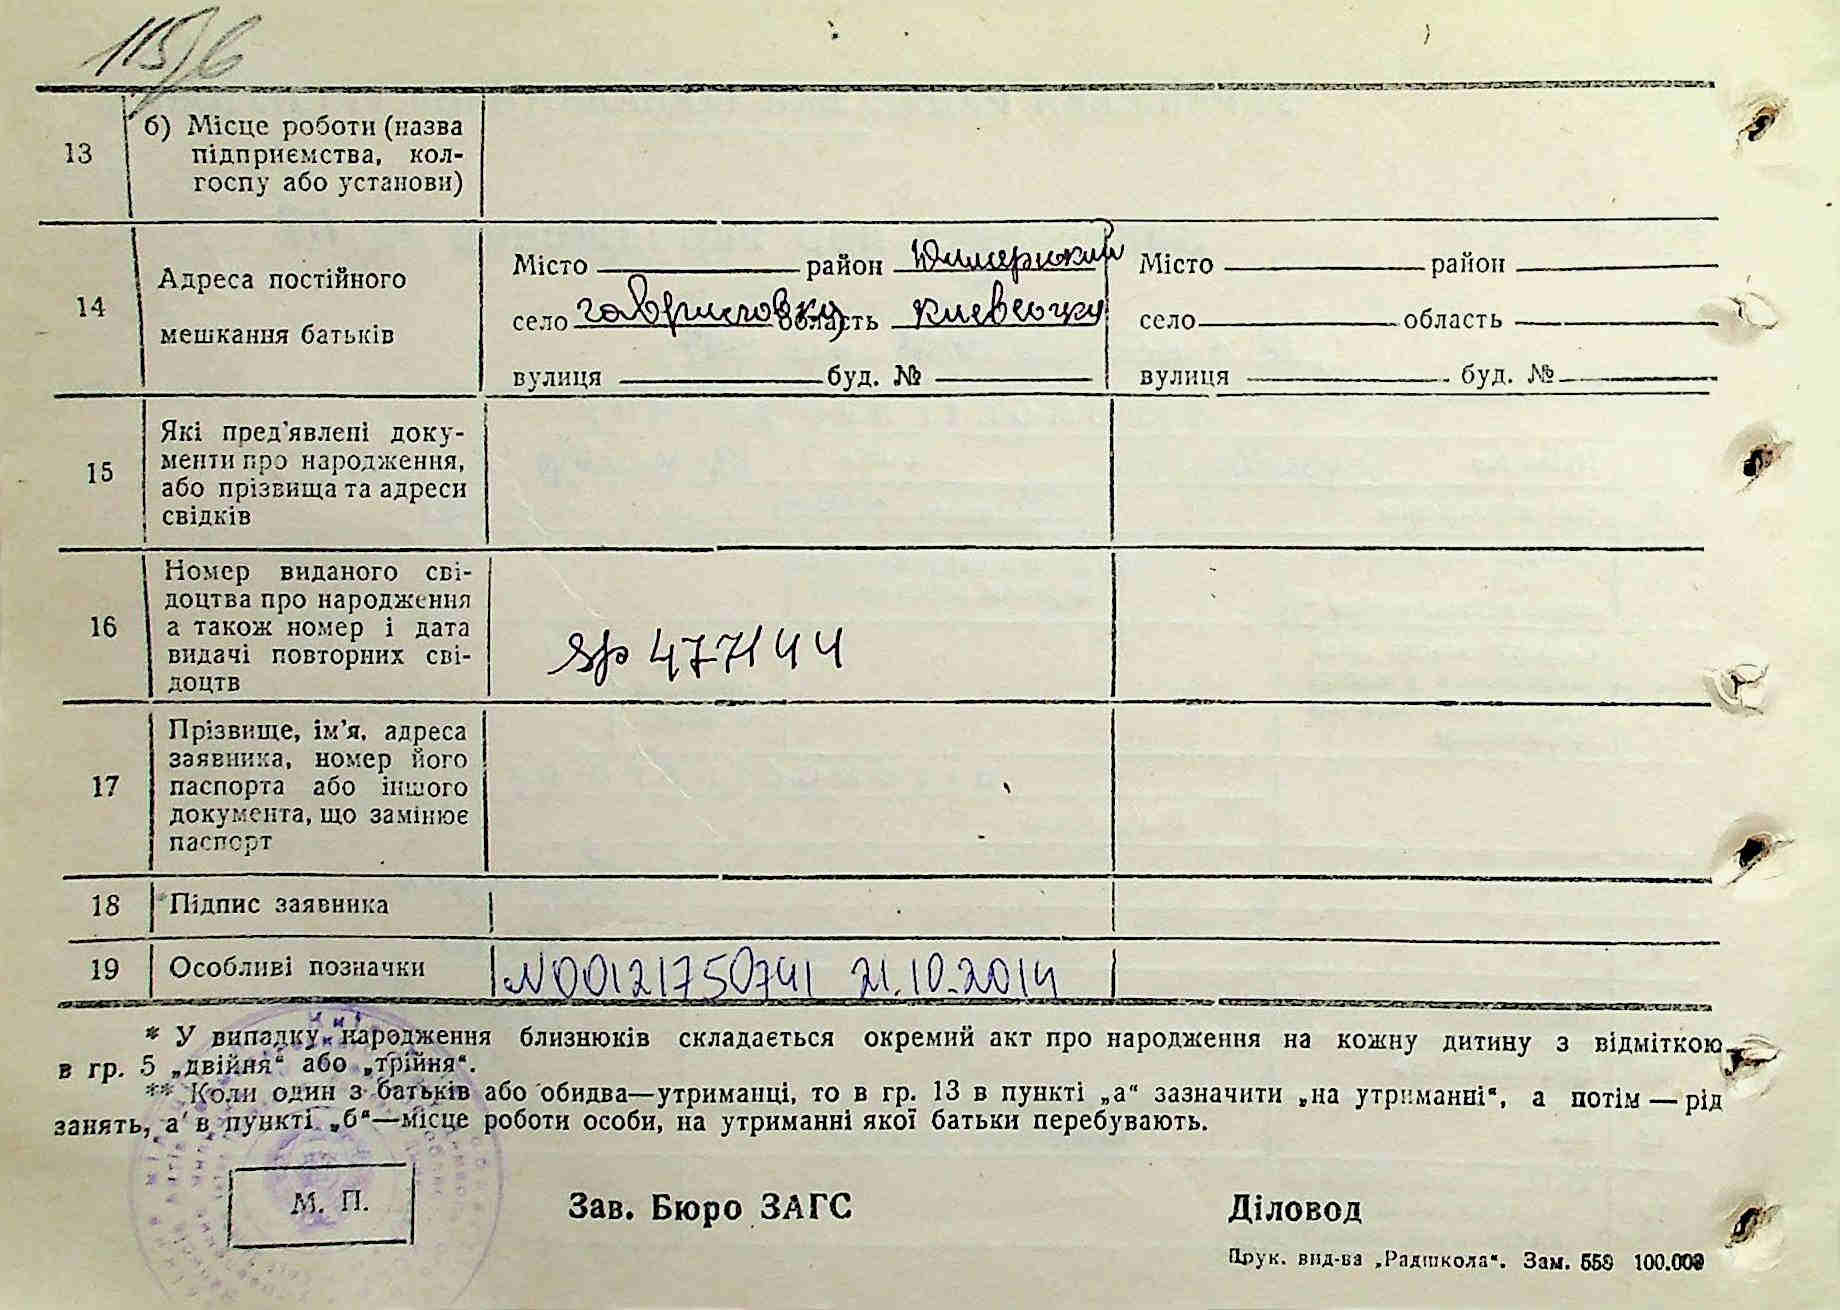 115/6
13
б) Місце роботи (назва
підприємства, кол-
госпу або установи)
14
Адреса постійного
мешкання батьків
Місто район Димерский
село Гавриловка область Киевская
вулиця буд. №
Місто район
село область
вулиця буд. №
15
Які пред'явлені доку-
менти про народження,
або прізвища та адреси
свідків
16
Номер виданого сві-
доцтва про народження
а також номер і дата
видачі повторних сві-
доцтв
477144
17
Прізвище, ім'я, адреса
заявника, номер його
паспорта або іншого
документа, що замінює
паспорт
18
Підпис заявника
19
Особливі позначки
N00121750741 21.10.2014
* У випадку народження близнюків складається окремий акт про народження на кожну дитину з відміткою
в гр. 5 „двійня“ або „трійня“.
** Коли один з батьків або обидва—утриманці, то в гр. 13 в пункті „а“ зазначити „на утриманні“, а потім — рід
занять, а в пункті „б“—місце роботи особи, на утриманні якої батьки перебувають.
М. П.
Зав. Бюро ЗАГС
Діловод
Друк. вид-ва „Радшкола“. Зам. 559 100.000